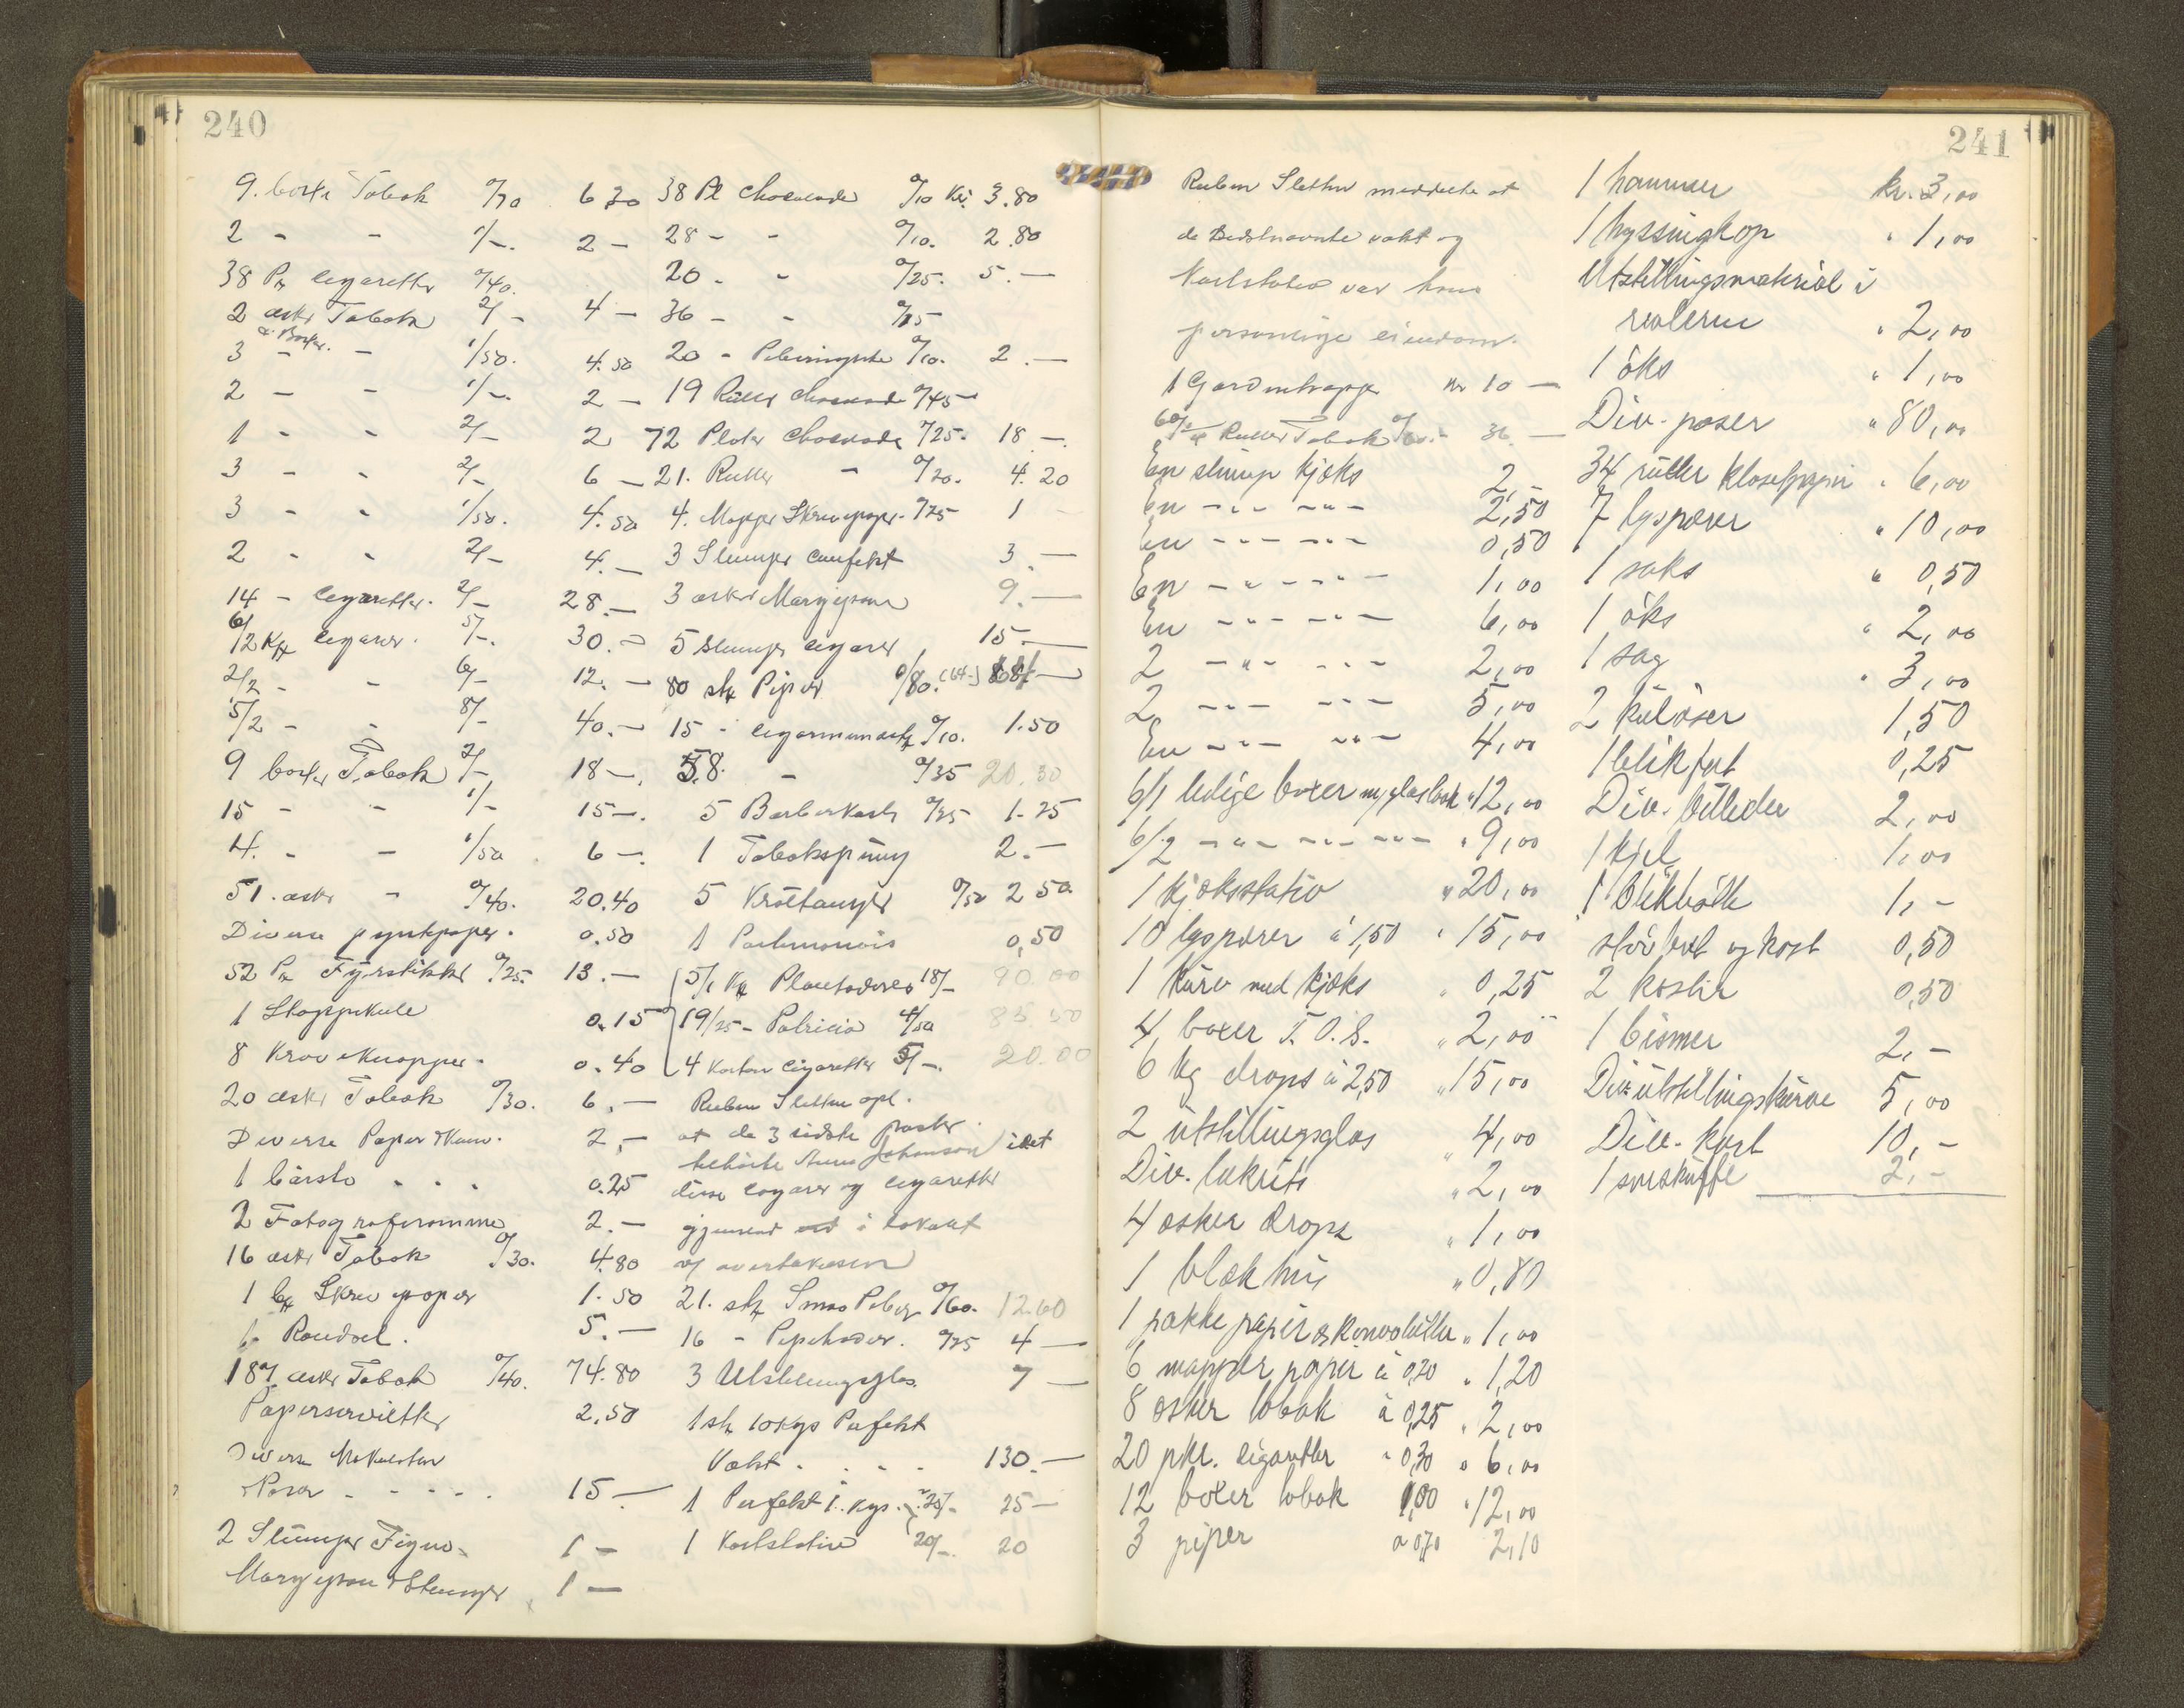 240
9. boxe Tobak 0/70 6 30
2 - - 1/-. 2 -
38 Pk cigaretter 0/40.
2 æsker Tobak 2/- 4 -
a Boxer.
3 - - 1/50. 4.50
2 - - 1/-. 2 -
1 - - 2/- 2
3 - - 2/- 6 -
3 - - 1/50. 4.50
2 - - 2/- 4.-
14 - cigaretter. 2/- 28.-
6/2 Ks cigarer. 5/-. 30.-
2/2 - - 6/- 12.-
5/2 - - 8/- 40.-
9 boxer Tobak 2/- 18-.
15 - - 1/- 15-.
4. - - 1/50 6-.
51. æsker - 0/40. 20.40
Diverse pyntepaper. 0.50
52 Pk Fyrstikker 0/25. 13.-
1 Stoppekule 0.15
8 Krave knapper. 0.40
20 æsker Tobak 0/30. 6.-
Diverse Papir 2.-
1 börste . . . 0.25
2 Fotografiramme 2.-
16 æsker Tobak 0/30. 4.80
1 Skrivepapir 1.50
5.-
187 æsker Tobak 0/40. 74.80
Papirservietter 2.50
Diverse
Poser - - - - . 15.-
2 Slumper Figno 1 -
Marsipan Slumper 1 -
38 Pl chocolade 0/10 Kr. 3.80
28 - - 0/10. 2.80
20 - - 0/25. 5.-
36 - - 0/15
20 - Pebermynte 0/10. 2.-
19 Ruller chocolade 0/45
72 Plater chocolade 0/25. 18-.
21. Ruller - 0/20. 4.20
4. Mapper Skrivepapir 0/25 1 -
3 Slumper confekt 3.-
3 æsker Marsipan 9.-
5 slumper cigarer 15.-
80 stk Piper 0/80. (64-)
15 - cigarmunnstk 0/10. 1.50
58. - 0/35 20.30
5 Barberkoste 0/25 1.25
1 Tobakspung 2.-
5 Krøltanger 0/50 2 50
1 Portemonnais 0,50
5/1 Ks Plantadores 18/- 90.00
19/25 - Patricia 4/50 85.50
4 Karton cigaretter 5/-. 20.00
Ruben Sletten opl.
at de 3 sidste poster
tilhörte Johanson idet
disse cigarer og cigaretter
i lokalet
v/ overtakelsen
21. stk Smaa Piber 0/60. 12.60
16 - Pipehoder. 0/25 4 -
3 Utstillingsglas 7 -
1 stk 10 Kgs Perfekt
Vekt . . . . 130.-
1 Perfekt 1. kgs. 25/- 25 -
1 Kortstativ 20/-. 20
241
Ruben Sletten meddelte at
de sidstnævnte vekt og
Kortstativ var hans
personlige eiendom.
1 Gardintrappe kr 10 -
60/2 Ruller Tobak 36.-
En slump kjeks 2,-
En -"- -"- 2,50
En -"- -"- 0,50
En -"- -"- 1,00
En -"- -"- 6,00
2 -"- -"- 2,00
2 -"- -"- 5,00
En -"- -"- 4,00
6/1 ledige boxer m/glaslåk " 12,00
6/2 -"- -"- -"- " 9,00
1 kjeksstativ " 20,00
10 lyspærer à 1,50 " 15,00
1 kurv med kjeks " 0,25
4 boxer T.O.S. " 2,00
6 kg drops à 2,50 " 15,00
2 utstillingsglas " 4,00
Div. lakrits " 2,00
4 esker drops " 1,00
1 blækhus " 0,80
1 pakke papir og konvolutter " 1,00
6 mapper papir à 0,20 " 1,20
8 esker tobak à 0,25 " 2,00
20 pkr. cigaretter " 0,30 " 6,00
12 boxer tobak 1,00 " 12,00
3 piper à 0,70 2,10
1 hammer kr. 3,00
1 hyssingkop " 1,00
Utstillingsmaterial i
reolerne " 2,00
1 öks " 1,00
Div. poser " 80,00
34 ruller klosetpapir " 6,00
7 lyspærer " 10,00
1 saks " 0,50
1 öks " 2,00
1 sag " 3,00
2 kuløser 1,50
1 blikfat 0,25
Div. billeder 2,00
1 kjel 1,00
1 blikbøtte 1,-
støvbret og kost 0,50
2 koster 0,50
1 bismer 2,-
Div. utstillingskurve 5,00
Div. kort 10,-
1 snøskuffe 2,-